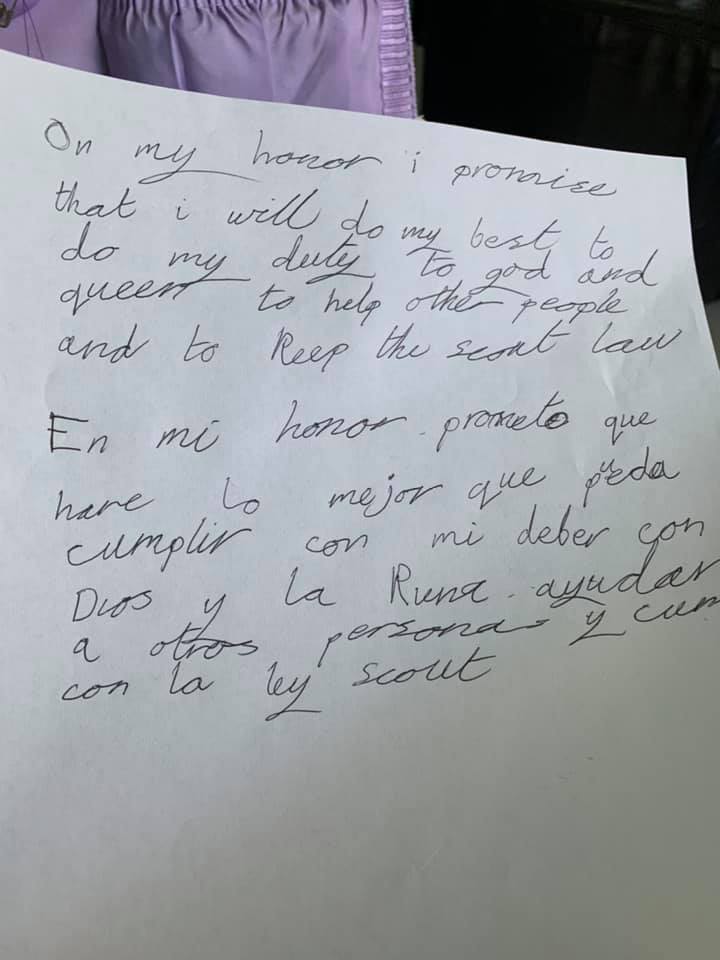 On my honor i promise
that i will do my best to
do my duty to god and
queen to help other people
and to keep the scout law
En mi honor prometo que
hare lo mejor que pueda
cumplir con mi deber con
Dios y la Runa ayudar
a otros personas y cum
con la ley scout